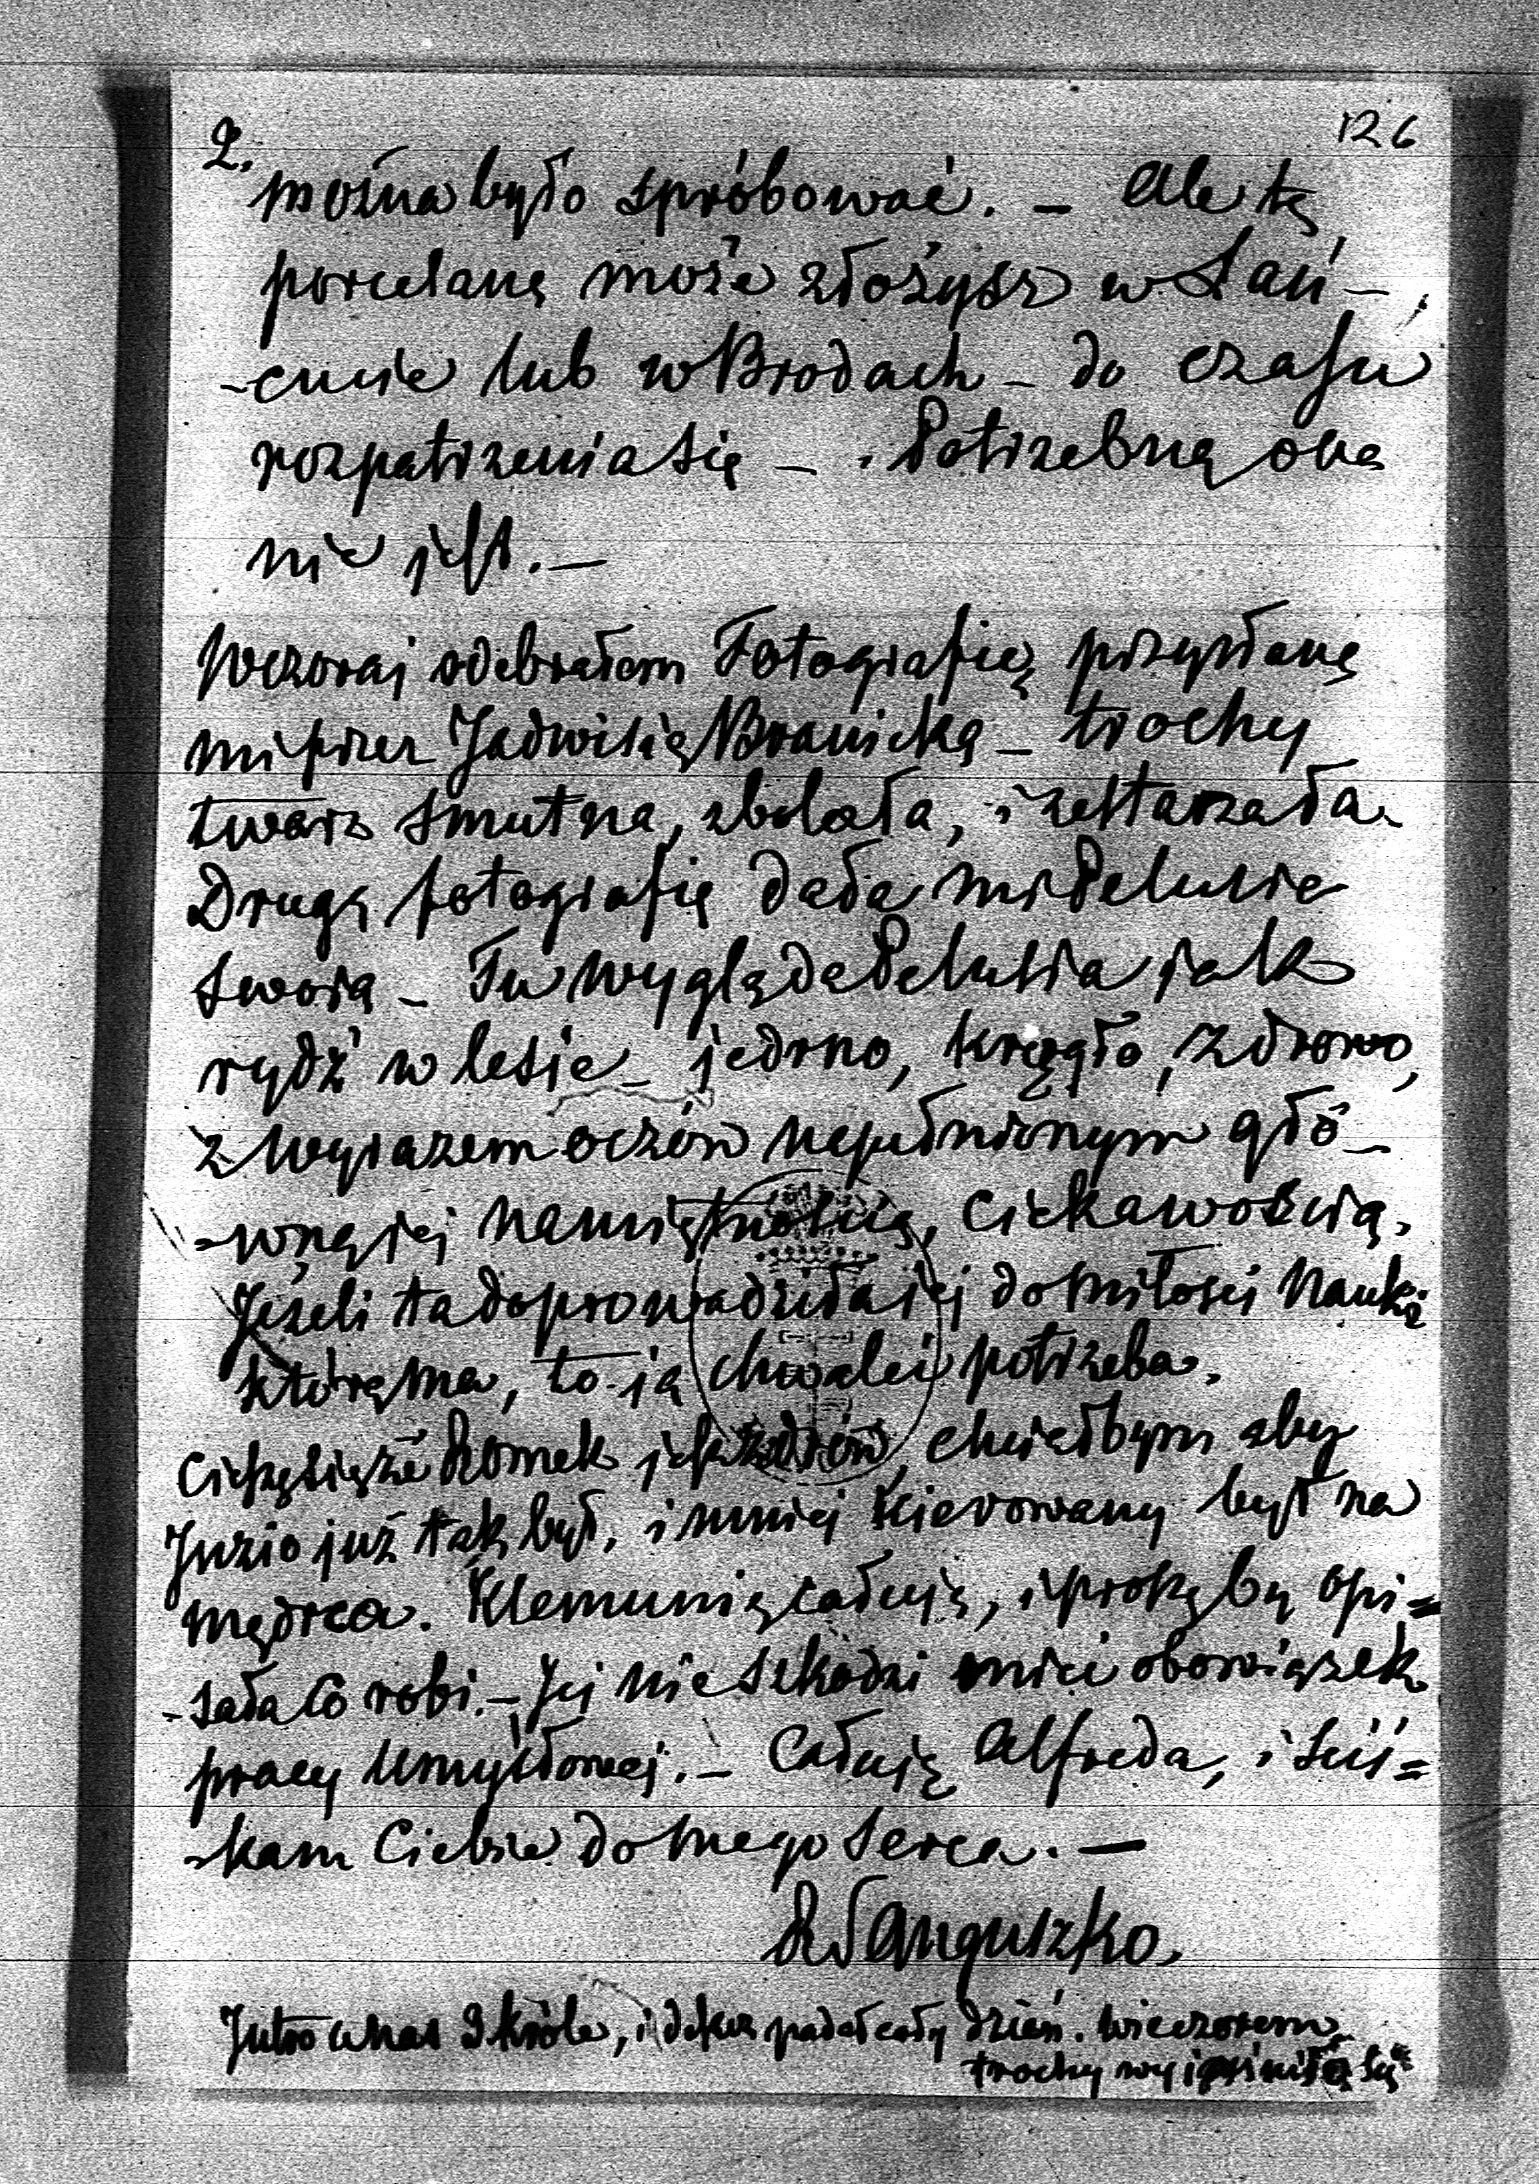 2.
126
można było spróbować. – Ale tę
porcelanę może złożysz w Łań-
-cucie lub w Brodach – do czasu
rozpatrzenia się – . Potrzebną ona
nie jest. –
Wczoraj odebrałem Fotografię przysłaną
mi przez Jadwisię Branicką – trochy
twarz smutna, zbolała, i zestarzała.
Drugą fotografię dała mi Pelusie
swoją – Tu wygląda Pelusia jak
rydź w lesie – jedrno, krągło, zdrowo,
z wyrazem oczów napełnionym głó-
-wną jej namiętnością, ciekawością.
Jeżeli ta doprowadziła jej do miłości nauki
którą ma, to ją chwalić potrzeba.
Cieszę się że Romek jest zdrów, chciałbym aby
Juzio już tak był, i mniej kierowany był na
mędrca. Klemunię całuję, i proszę by opi=
-sała co robi. – Jej nie szkodzi mieć obowiązek
pracy umysłowej. – Całuję Alfreda, i ściś=
-kam Ciebie do mego serca. –
R Sanguszko.
Jutro u nas 3 króle, i deszcz padał cały dzień. wieczorem
trochy wyjaśniło się